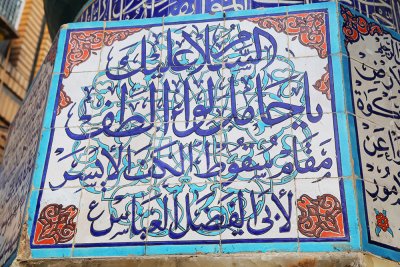 السلام عليك
يا حامل لواء الطف
مقام سقوط الكف الأيسر
لأبي الفضل العباس ع